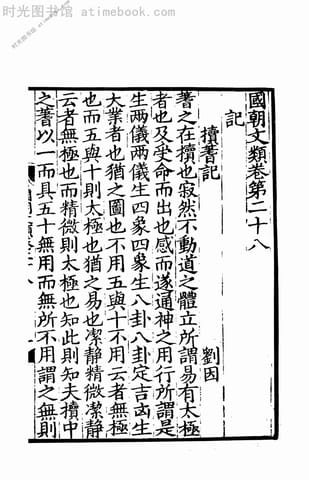 时光图书馆 - atimebook.com
國朝文類卷第二十八
記
櫝蓍記
劉因
蓍之在櫝也寂然不動道之體立所謂易有太極
者也及受命而出也感而遂通神之用行所謂是
生兩儀兩儀生四象四象生八卦八卦定吉凶生
大業者也猶之圖也不用五與十不用云者無極
也而五與十則太極也猶之易也潔靜精微潔靜
云者無極也而精微則太極也知此則知夫櫝中
之蓍以一而具五十無用而無所不用謂之無則